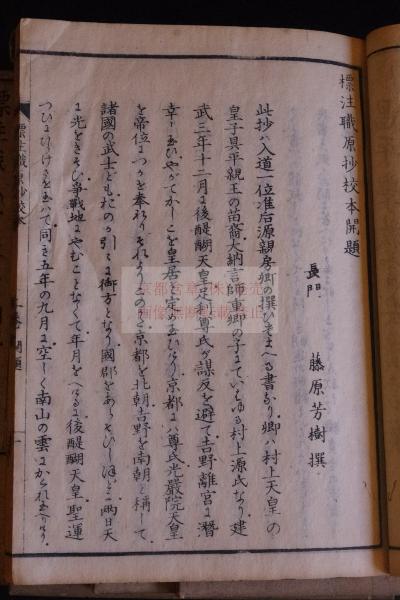 標注職原抄校本開題
長門 藤原芳樹撰
此抄ハ入道一位准后源親房卿の撰びたまへる書なり卿ハ村上天皇の
皇子具平親王の苗裔大納言師重卿の子にていはゆる村上源氏なり建
武三年十二月に後醍醐天皇足利尊氏が謀反を避て吉野離宮に潜
幸したまひやがてかしこを皇居と定めたまひけり京都にハ尊氏光嚴院天皇
を帝位につかせ奉れりそれよりしのかた京都を北朝吉野を南朝と稱して
諸國の武士どもたのが引く御方となり國郡をあらそひしほどに兩日天
に光をきそひ爭戰地にやむことなくて年月をへるに後醍醐天皇聖運
つひにひらけさせたまハで同き五年の九月に空しく南山の雲にかくれたまひけり
標注職原抄校本
開題